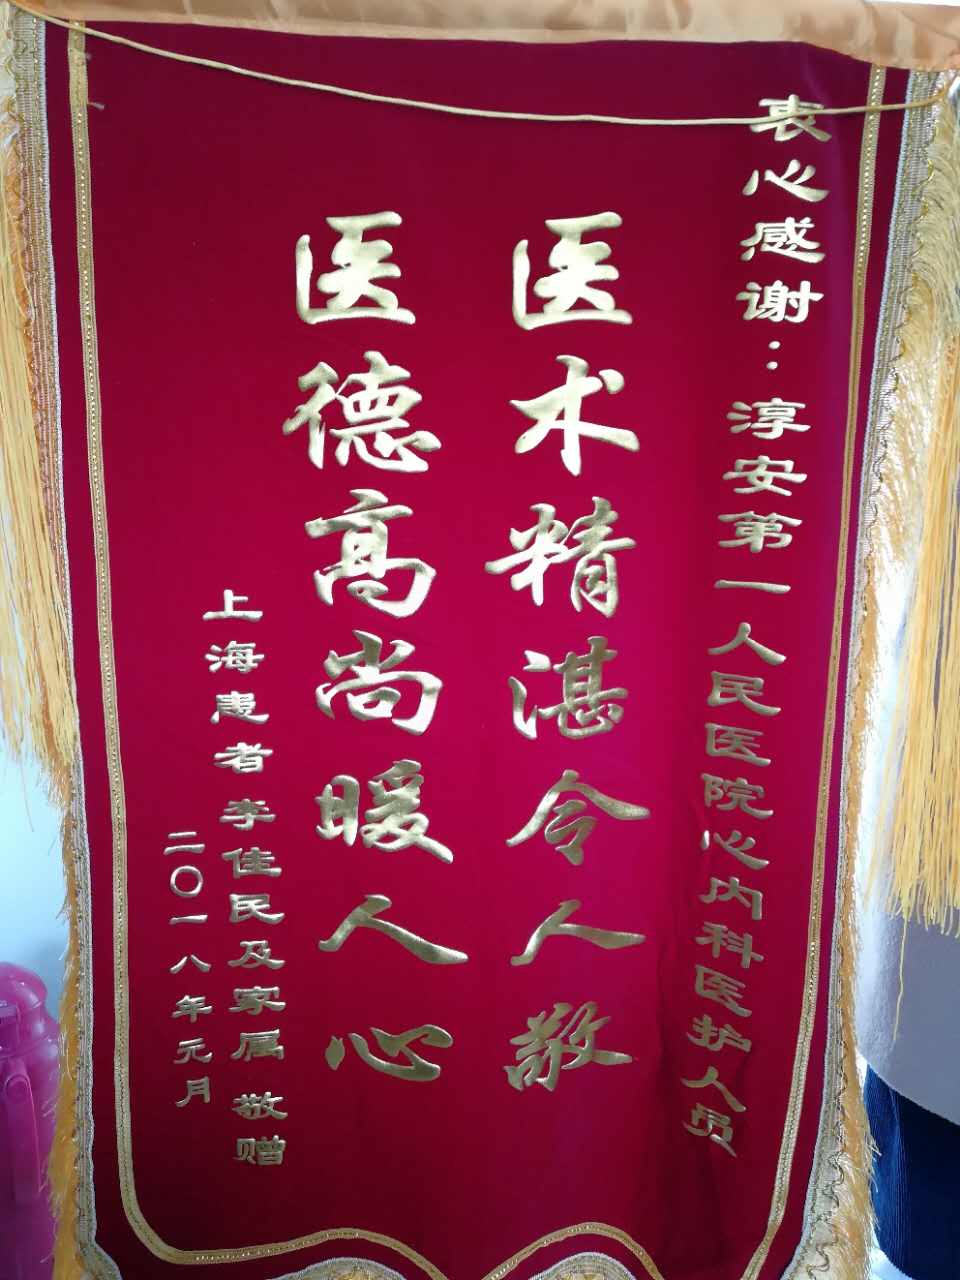 衷心感谢：淳安第一人民医院心内科医护人员
医术精湛令人敬
医德高尚暖人心
上海患者李佳民及家属 敬赠
二〇一八年元月